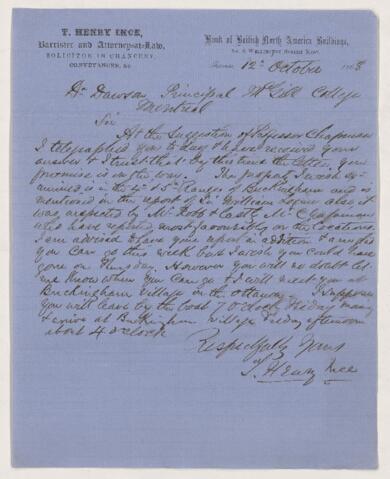 T. HENRY INCE,
Barrister and Attorney-at-Law,
SOLICITOR IN CHANCERY,
CONVEYANCER, &c
Bank of British North America Buildings,
12th October
Dr Dawson Principal McGill College
Montreal
Sir
At the suggestion of Professor Chapman
I telegraphed you to day & have received your
answer & I trust that by this time the letter you
promise is on the way. The property I wish
is in the 4th & 5th Ranges of Buckingham and is
mentioned in the report of Sir William Logan also it
was inspected by Mr Robb & Chapman
and have reported most favourably on the locations.
I am advised to have your report in addition &
you can go this week but I wish you could have
gone on Thursday. However you will no doubt let
me know when you can go & I will meet you at
Buckingham Village on the Ottawa. I suppose
you will leave by the boat 7 O'clock Friday morng
& arrive at Buckingham village Friday afternoon
about 4 o'clock
Respectfully Yours
T. Henry Ince